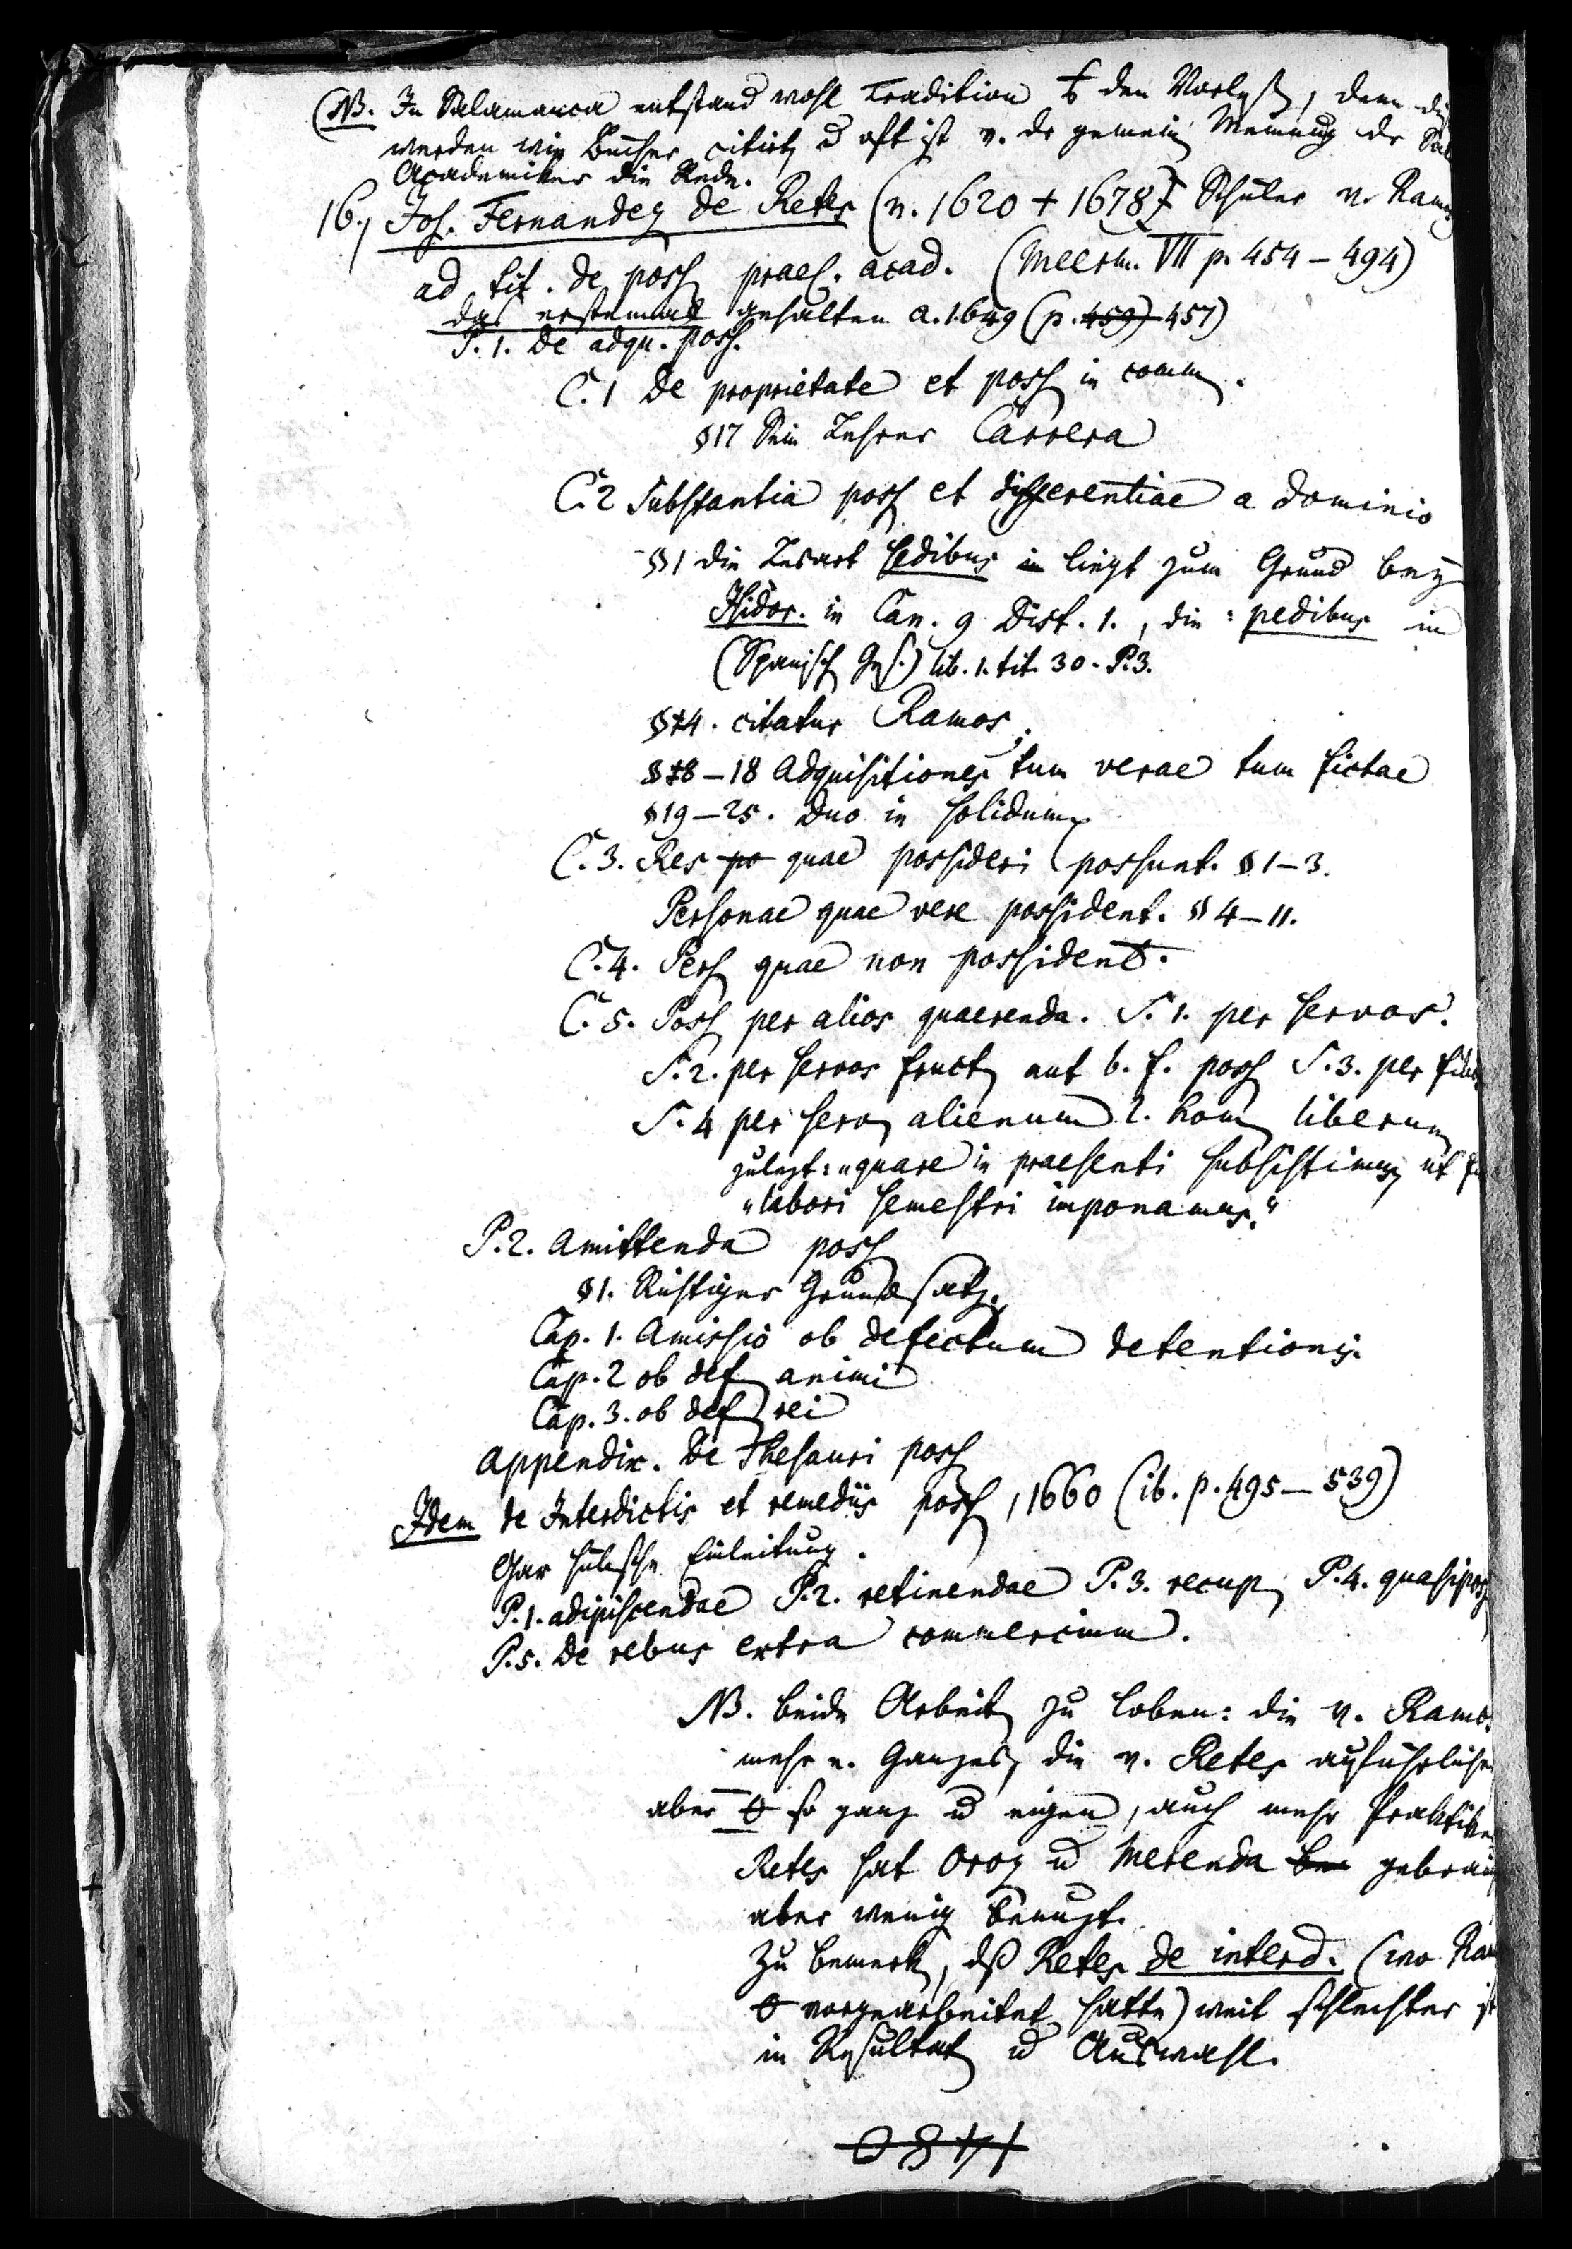 (NB. In Salamanca entstand wohl Tradition den Vorles, denn die
werden wie Bücher citirt u oft ist v. der gemein Meinung der
Academiker die Rede.
16., Jos. Fernandez de Retes (n. 1620 + 1678) Schüler v. Ramos
ad tit. de poss praes. acad. (Meerm. VII p. 454–494)
das erstemal gehalten a. 1649 (p. 459) 457)
P. 1. de adqu. poss.
C. 1 de proprietate et poss in comm.
§17 Sein Lehrer Carrera
C. 2 Substantia poss et differentiae a dominio
§1 die Lesart sedibus in liegt zum Grund bey
Isidor. in Can. 9 Dist. 1., die: pedibus in
(Spanisch Ges.) lib. 1. tit. 30. P. 3.
§4. citatur Ramos.
§8–18 Adquisitiones tum verae tum fictae
§19–25. Duo in solidum
C. 3. Res po quae possideri possunt. §1–3.
Personae quae vere possident. §4–11.
C. 4. Pers quae non possident.
C. 5. Poss per alios quaerenda. S. 1. per servos.
S. 2. per servos fruct aut b. f. poss S. 3. per
S. 4 per serv alienum l. hom liberum
zulezt: "quare in praesenti subsistimus, ut
"labori semestri imponamus."
P. 2. Amittenda poss
§1. Richtiger Grundsatz.
Cap. 1. Amissio ob defectum detentionis.
Cap. 2 ob def animi
Cap. 3. ob def rei
Appendix. De Thesauri poss
Idem de Interdictis et remediis poss, 1660 (ib. p. 495–539)
Gar hübsche Einleitung.
P. 1. adipiscendae P. 2. retinendae P. 3. recup P. 4. quasiposs
P. 5. de rebus extra commercium.
NB. beide Arbeit zu loben: die v. Ramos
mehr e. Ganzes, die v. Retes ausführlicher
aber so ganz u eigen, auch mehr Praktiker
Retes hat Oroz u Merenda be gebraucht
aber wenig benuzt.
Zu bemerk, dß Retes de interd. (wo Ramos
vorgearbeitet hatte) weit schlechter ist
in Resultat u Auswahl.